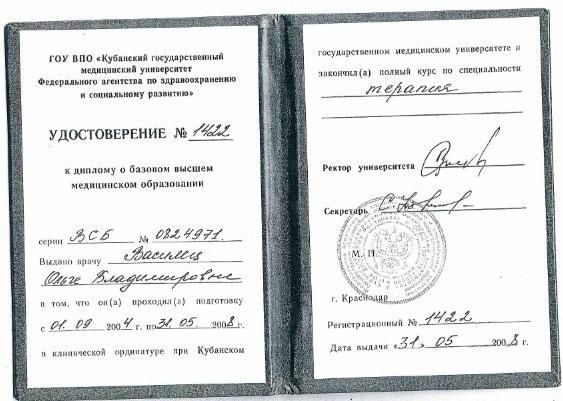 ГОУ ВПО «Кубанский государственный
медицинский университет
Федерального агентства по здравоохранению
и социальному развитию»
УДОСТОВЕРЕНИЕ № 1422
к диплому о базовом высшем
медицинском образовании
серии ВСБ № 0824971.
Выдано врачу Василец
Ольге Владимировне
в том, что он(а) проходил(а) подготовку
с 01.09 2004 г. по 31.05 2008 г.
в клинической ординатуре при Кубанском
государственном медицинском университете и
закончил(а) полный курс по специальности
терапия
Ректор университета
Секретарь
М. П.
г. Краснодар
Регистрационный № 1422
Дата выдачи «31» 05 2008 г.